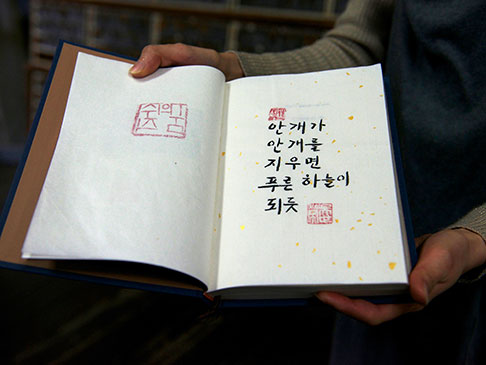 안개가
안개를
지우면
푸른 하늘이
되듯